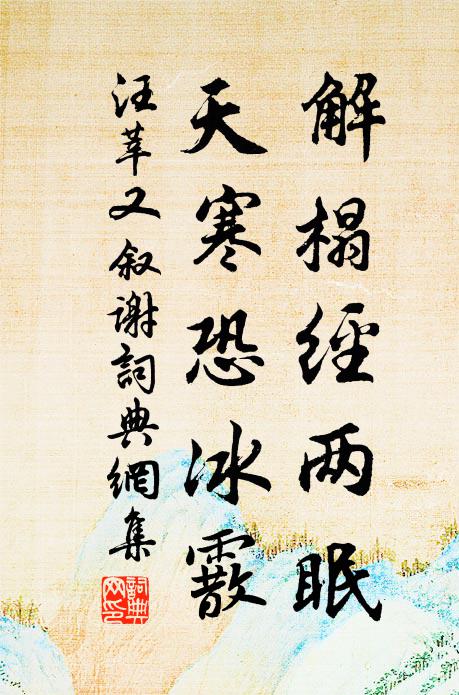 解榻經两眠
天寒恐冰霰
汪莘又叙谢詞典網集
詞典
网印